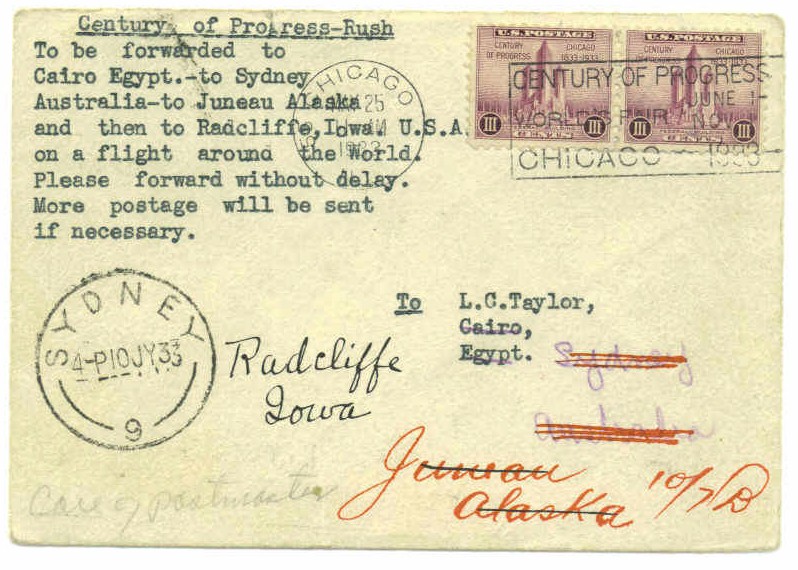 Century of Progress-Rush
To be forwarded to
Cairo Egypt.-to Sydney
Australia-to Juneau Alaska
and then to Radcliffe,Iowa. U.S.A.
on a flight around the World.
Please forward without delay.
More postage will be sent
if necessary.
U.S. POSTAGE
CENTURY OF PROGRESS
CHICAGO
1833-1933
III
III
U.S. POSTAGE
CHICAGO
III
III
CHICAGO
MAY 25
1933
CENTURY OF PROGRESS
JUNE 1-
WORLD'S FAIR NOV 1
CHICAGO 1933
To L.C.Taylor,
Cairo,
Egypt. Sydney
Australia
SYDNEY
4-P10JY33
9
Radcliffe
Iowa
Juneau
Alaska
10/7 B
Care of postmaster